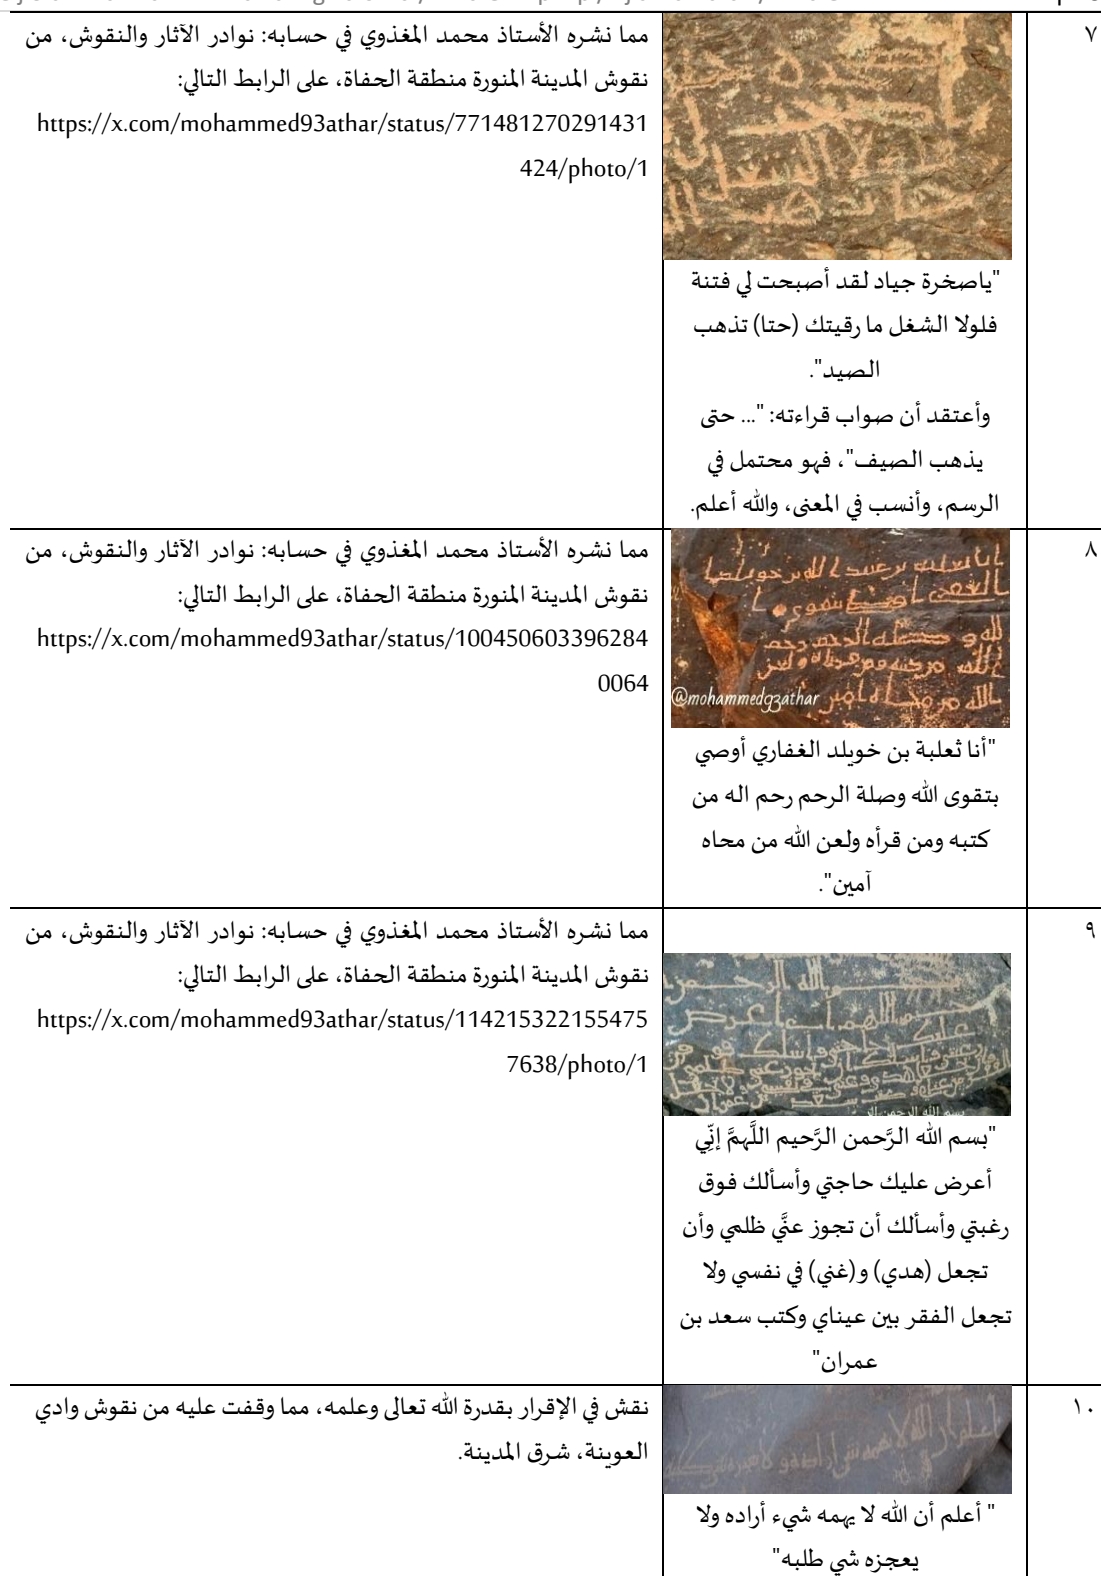 ٧
"ياصخرة جياد لقد أصبحت لي فتنة
فلولا الشغل ما رقيتك (حتا) تذهب
الصيد".
وأعتقد أن صواب قراءته: "... حتى
يذهب الصيف"، فهو محتمل في
الرسم، وأنسب في المعنى، والله أعلم.
مما نشره الأستاذ محمد المغذوي في حسابه: نوادر الآثار والنقوش، من
نقوش المدينة المنورة منطقة الحفاة، على الرابط التالي:
https://x.com/mohammed93athar/status/771481270291431
424/photo/1
٨
@mohammed93athar
"أنا ثعلبة بن خويلد الغفاري أوصي
بتقوى الله وصلة الرحم رحم اله من
كتبه ومن قرأه ولعن الله من محاه
آمين".
مما نشره الأستاذ محمد المغذوي في حسابه: نوادر الآثار والنقوش، من
نقوش المدينة المنورة منطقة الحفاة، على الرابط التالي:
https://x.com/mohammed93athar/status/100450603396284
0064
٩
"بسم الله الرَّحمن الرَّحيم اللَّهمَّ إنِّي
أعرض عليك حاجتي وأسألك فوق
رغبتي وأسألك أن تجوز عنَّي ظلمي وأن
تجعل (هدي) و(غني) في نفسي ولا
تجعل الفقر بين عيناي وكتب سعد بن
عمران"
مما نشره الأستاذ محمد المغذوي في حسابه: نوادر الآثار والنقوش، من
نقوش المدينة المنورة منطقة الحفاة، على الرابط التالي:
https://x.com/mohammed93athar/status/114215322155475
7638/photo/1
١٠
" أعلم أن الله لا يهمه شيء أراده ولا
يعجزه شي طلبه"
نقش في الإقرار بقدرة الله تعالى وعلمه، مما وقفت عليه من نقوش وادي
العوينة، شرق المدينة.